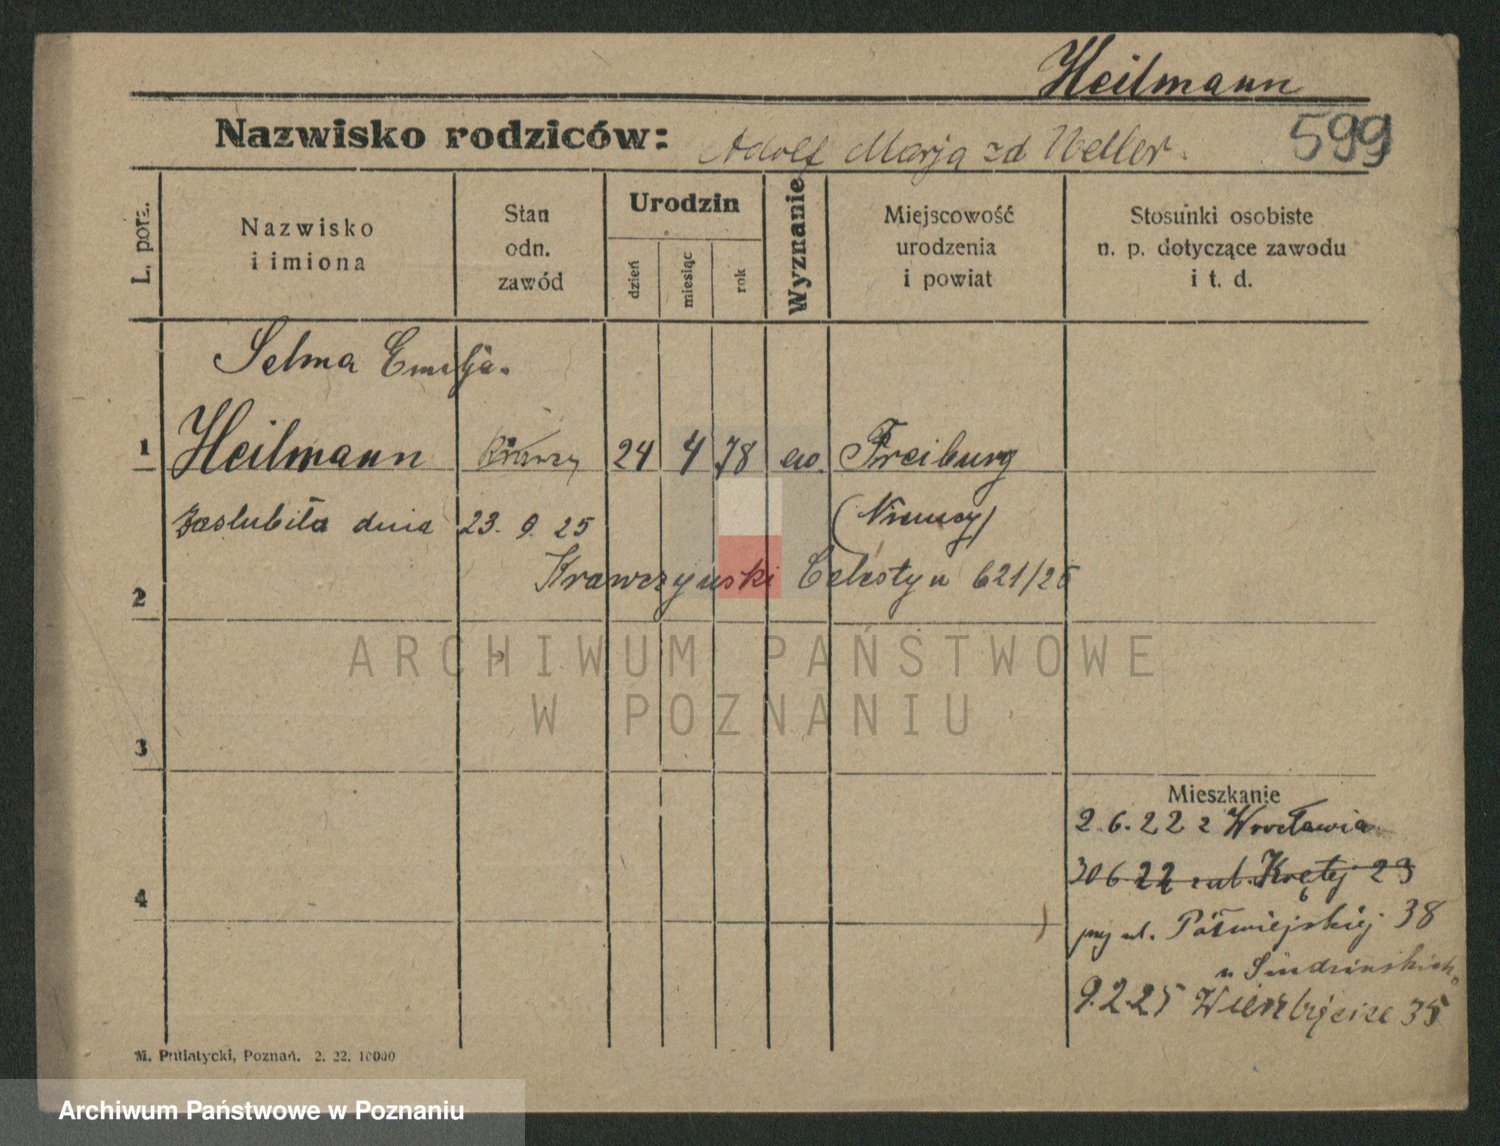 Heilmann
Nazwisko rodziców: Adolf Marja zd Weller.
599
L. porz.
Nazwisko
i imiona
Stan
odn.
zawód
Urodzin
dzień
miesiąc
rok
Wyznanie
Miejscowość
urodzenia
i powiat
Stosunki osobiste
n. p. dotyczące zawodu
i t. d.
Selma Emilja.
1 Heilmann 24 4 78 ew. Freiburg
zaslubiła dnia 23. 9. 25 (Niemcy)
Krawczynski Celestyn 621/25
2
3
Mieszkanie
2.6.22 z Wrocławia
30 6 22 z ul. Krętej 23
4
przy ul. Półwiejskiej 38
u
9.2.25 Wierzbięcice 35
M. Putiatycki, Poznań. 2. 22. 10000
ARCHIWUM PAŃSTWOWE
W POZNANIU
Archiwum Państwowe w Poznaniu